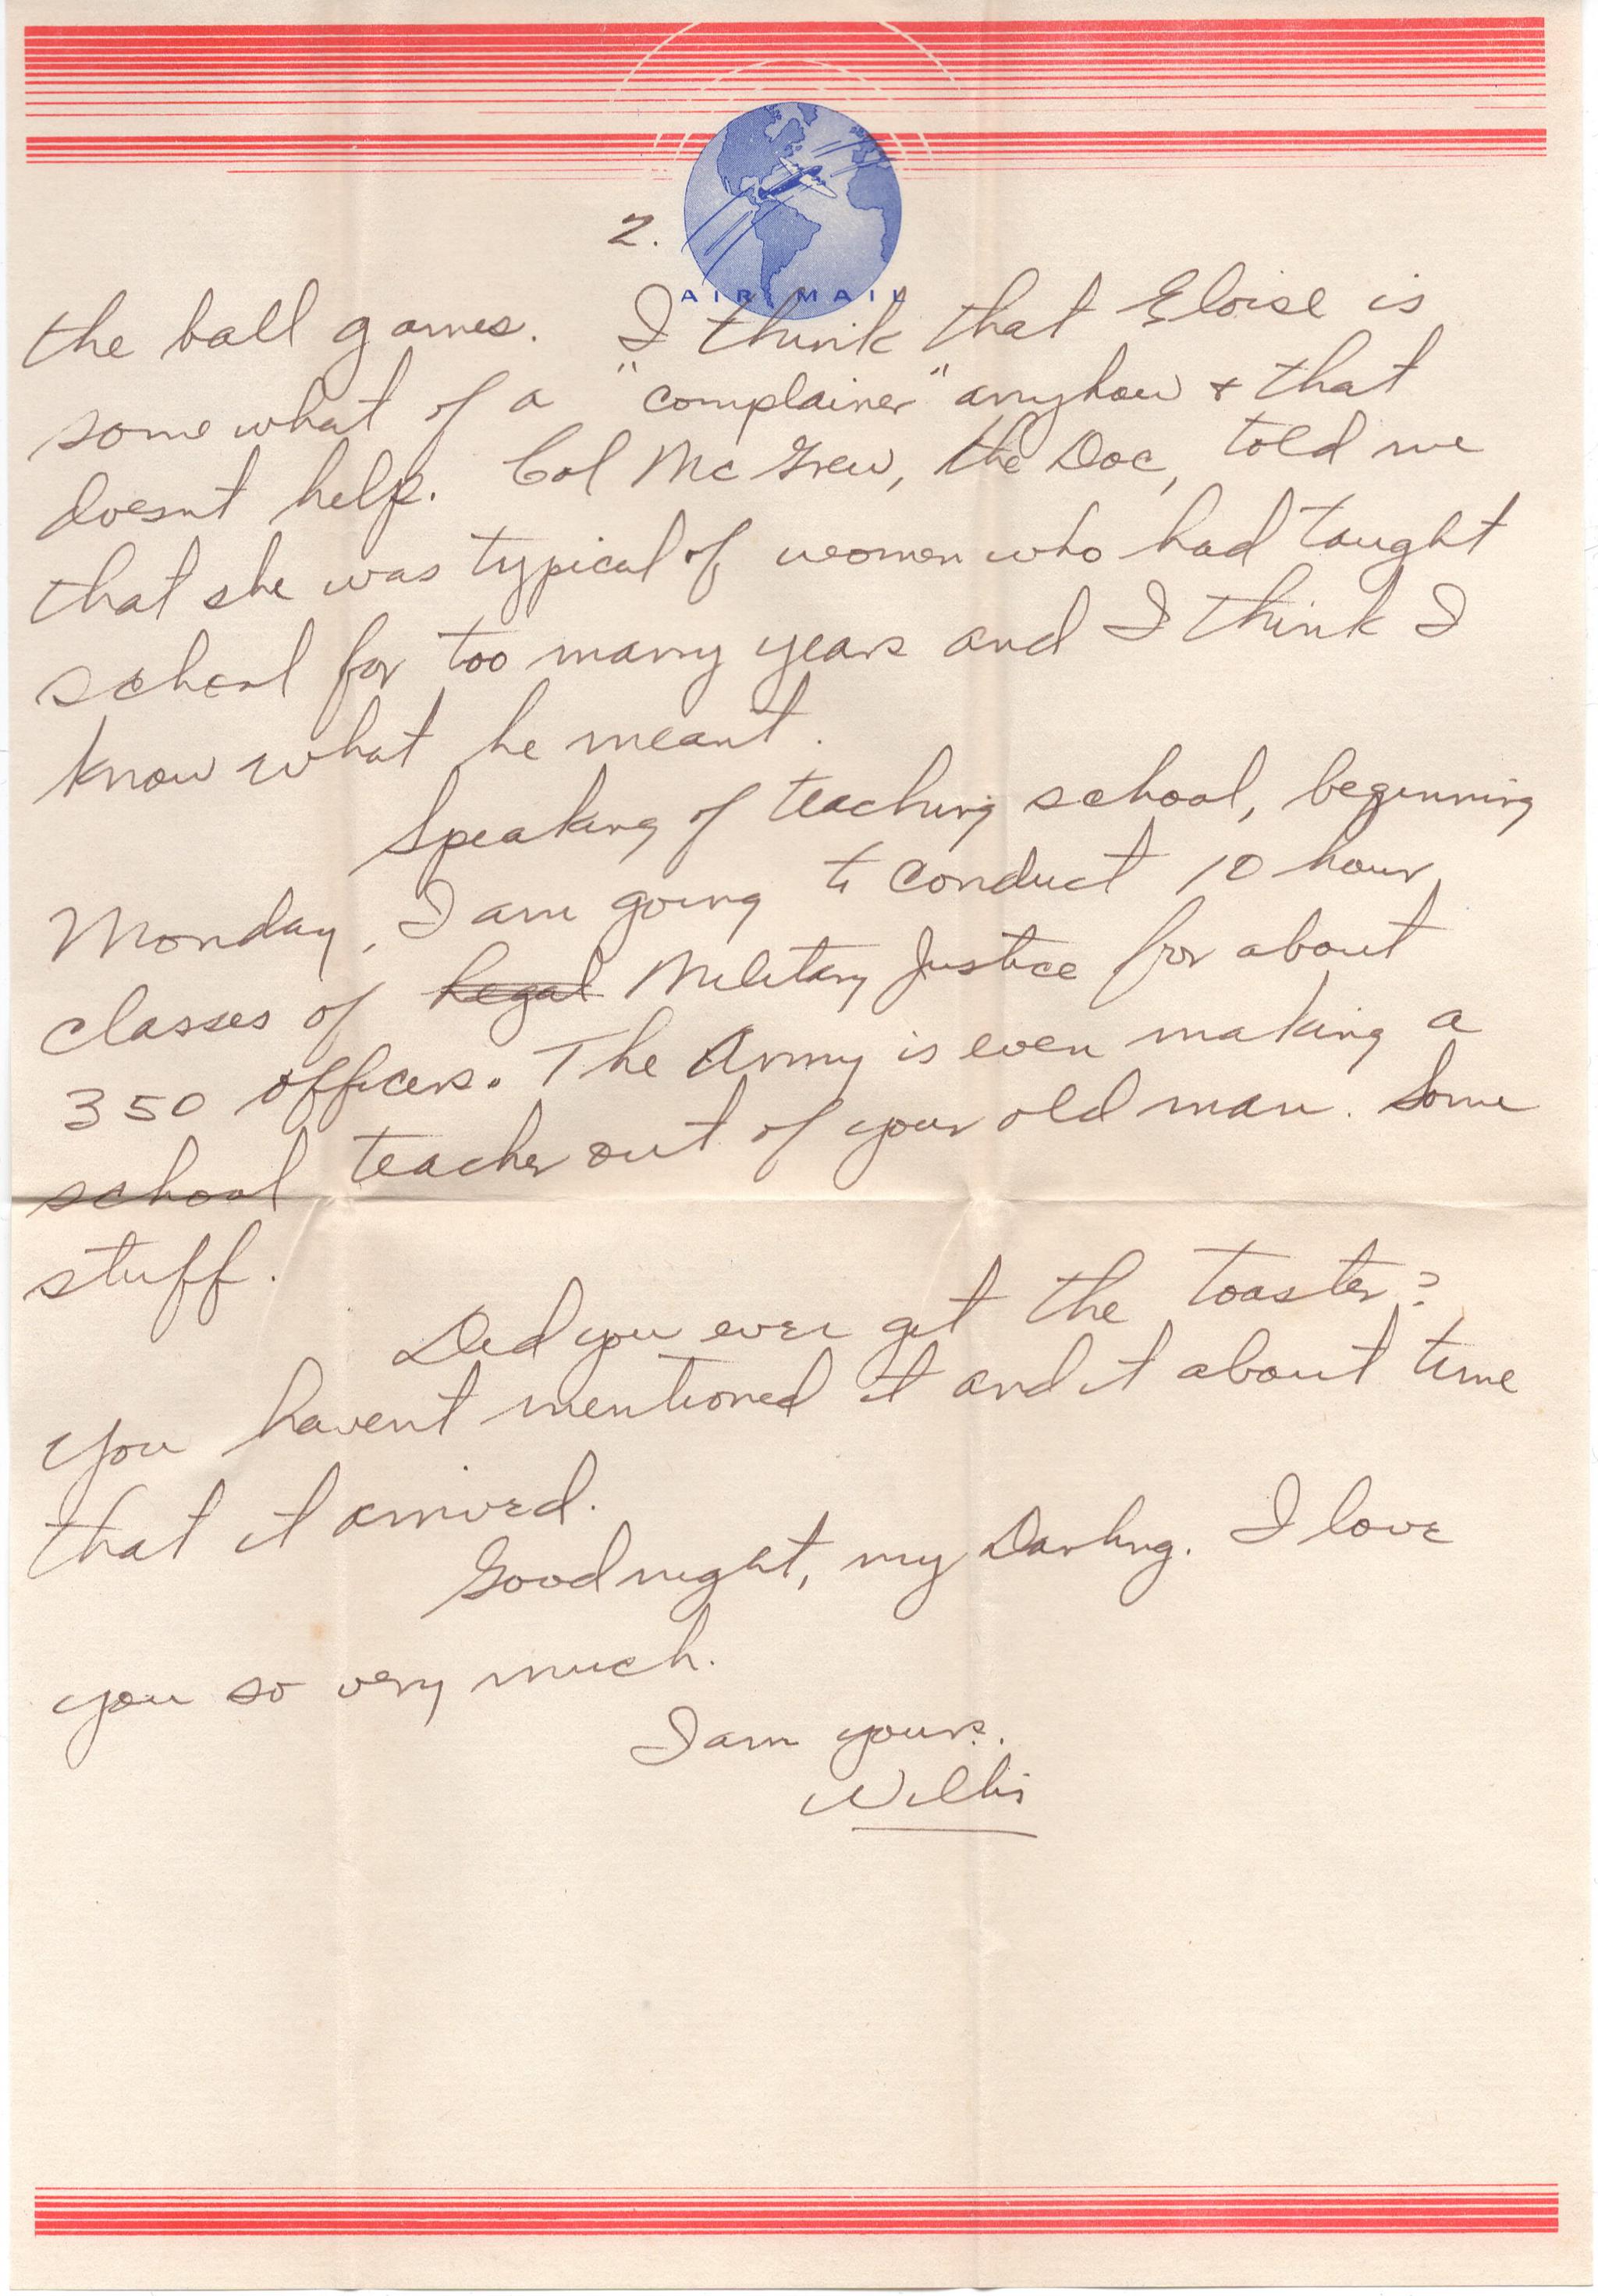 2.
AIR MAIL
the ball games. I think that Eloise is
somewhat of a "complainer" anyhow + that
doesnt help. Col McGrew, the Doc, told me
that she was typical of women who had taught
school for too many years and I think I
know what he meant.
Speaking of teaching school, beginning
Monday, I am going to conduct 10 hour
classes of Legal Military Justice for about
350 officers. The Army is even making a
school teacher out of your old man. Some
stuff.
Did you ever get the toaster?
You havent mentioned it and it about time
that it arrived.
Goodnight, my Darling. I love
you so very much.
I am yours.
Willis